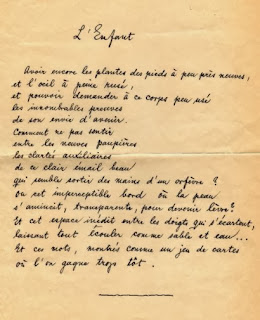 L'Enfant
Avoir encore les plantes des pieds à peu près neuves,
et l'œil à peine rusé,
et pouvoir demander à ce corps peu usé
les innombrables preuves
de son envie d'avenir.
Comment ne pas sentir
entre les neuves paupières
les clartés auxiliaires
de ce clair émail beau
qui semble sortir des mains d'un orfèvre ?
ou cet imperceptible bord où la peau
s'amincit, transparente, pour devenir lèvre ?
Et cet espace inédit entre les doigts qui s'écartent,
laissant tout écouler comme sable et eau...
Et ces mots, montrés comme un jeu de cartes
où l'on gagne trop tôt.